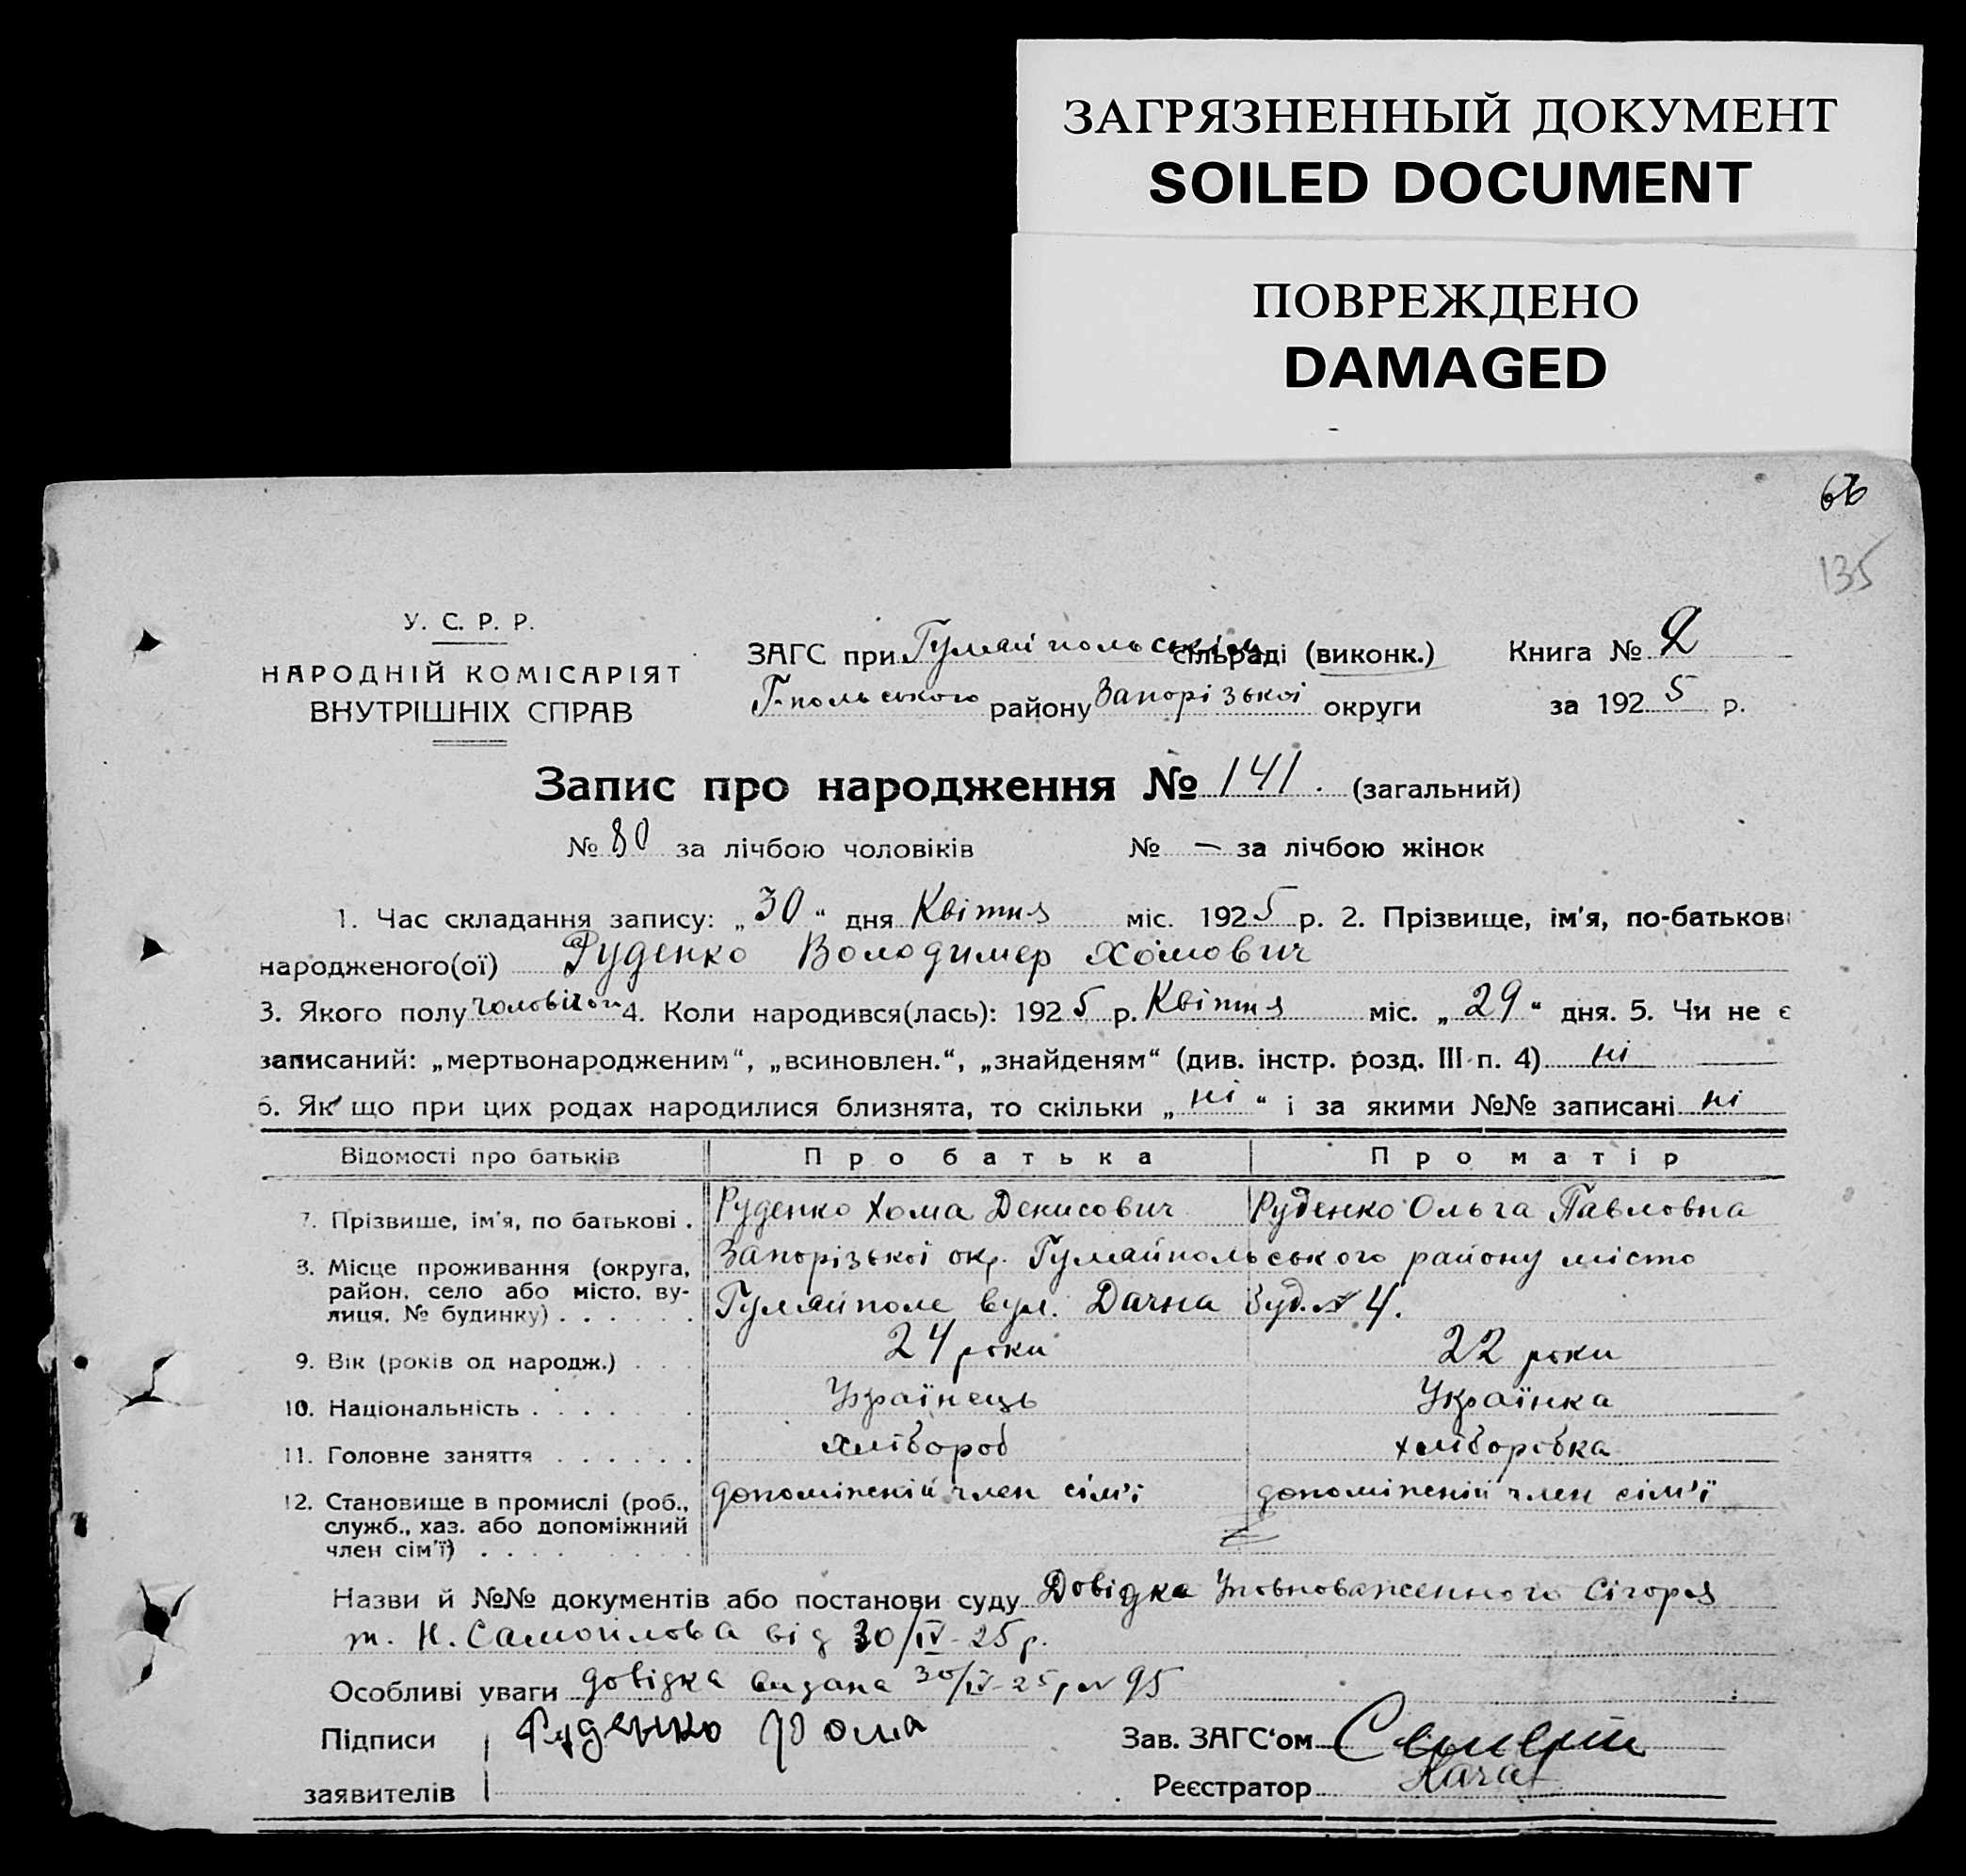 ЗАГРЯЗНЕННЫЙ ДОКУМЕНТ
SOILED DOCUMENT
ПОВРЕЖДЕНО
DAMAGED
135
У. С. Р. Р.
НАРОДНІЙ КОМІСАРІЯТ
ВНУТРІШНІХ СПРАВ
ЗАГС при Гуляйпольськім сільраді (виконк.)
Г-польського району Запорізької округи
Книга № 2
за 1925 р.
Запис про народження № 141. (загальний)
№ 80 за лічбою чоловіків № — за лічбою жінок
1. Час складання запису: „30“ дня Квітня міс. 1925 р. 2. Прізвище, ім'я, по-батькові
народженого(ої) Руденко Володимер Хомович
3. Якого полу чоловічого 4. Коли народився(лась): 1925 р. Квітня міс. „29“ дня. 5. Чи не є
записаний: „мертвонародженим“, „всиновлен.“, „знайденям“ (див. інстр. розд. III п. 4) ні
6. Як' що при цих родах народилися близнята, то скільки „ні“ і за якими №№ записані ні
Відомості про батьків Про батька Про матір
7. Прізвише, ім'я, по батькові . Руденко Хома Денисович Руденко Ольга Павловна
8. Місце проживання (округа, Запорізької окр. Гуляйпольського району місто
район, село або місто, ву-
лиця, № будинку) . . . . . . Гуляйполе вул. Дачна буд. № 4.
9. Вік (років од народж.) . . . 24 роки 22 роки
10. Національність . . . . . . . Українець Українка
11. Головне заняття . . . . . . хлібороб хлібор0бка
12. Становище в промислі (роб., допоміжний член сім'ї допоміжний член сім'ї
служб., хаз. або допоміжний
член сім'ї) . . . .
Назви й №№ документів або постанови суду Довідка Уповноваженного
т. Н. Самойлова від 30/IV-25 р.
Особливі уваги довідка видана 30/IV-25 р № 95
Підписи Руденко Хома Зав. ЗАГС'ом
заявителів Реєстратор